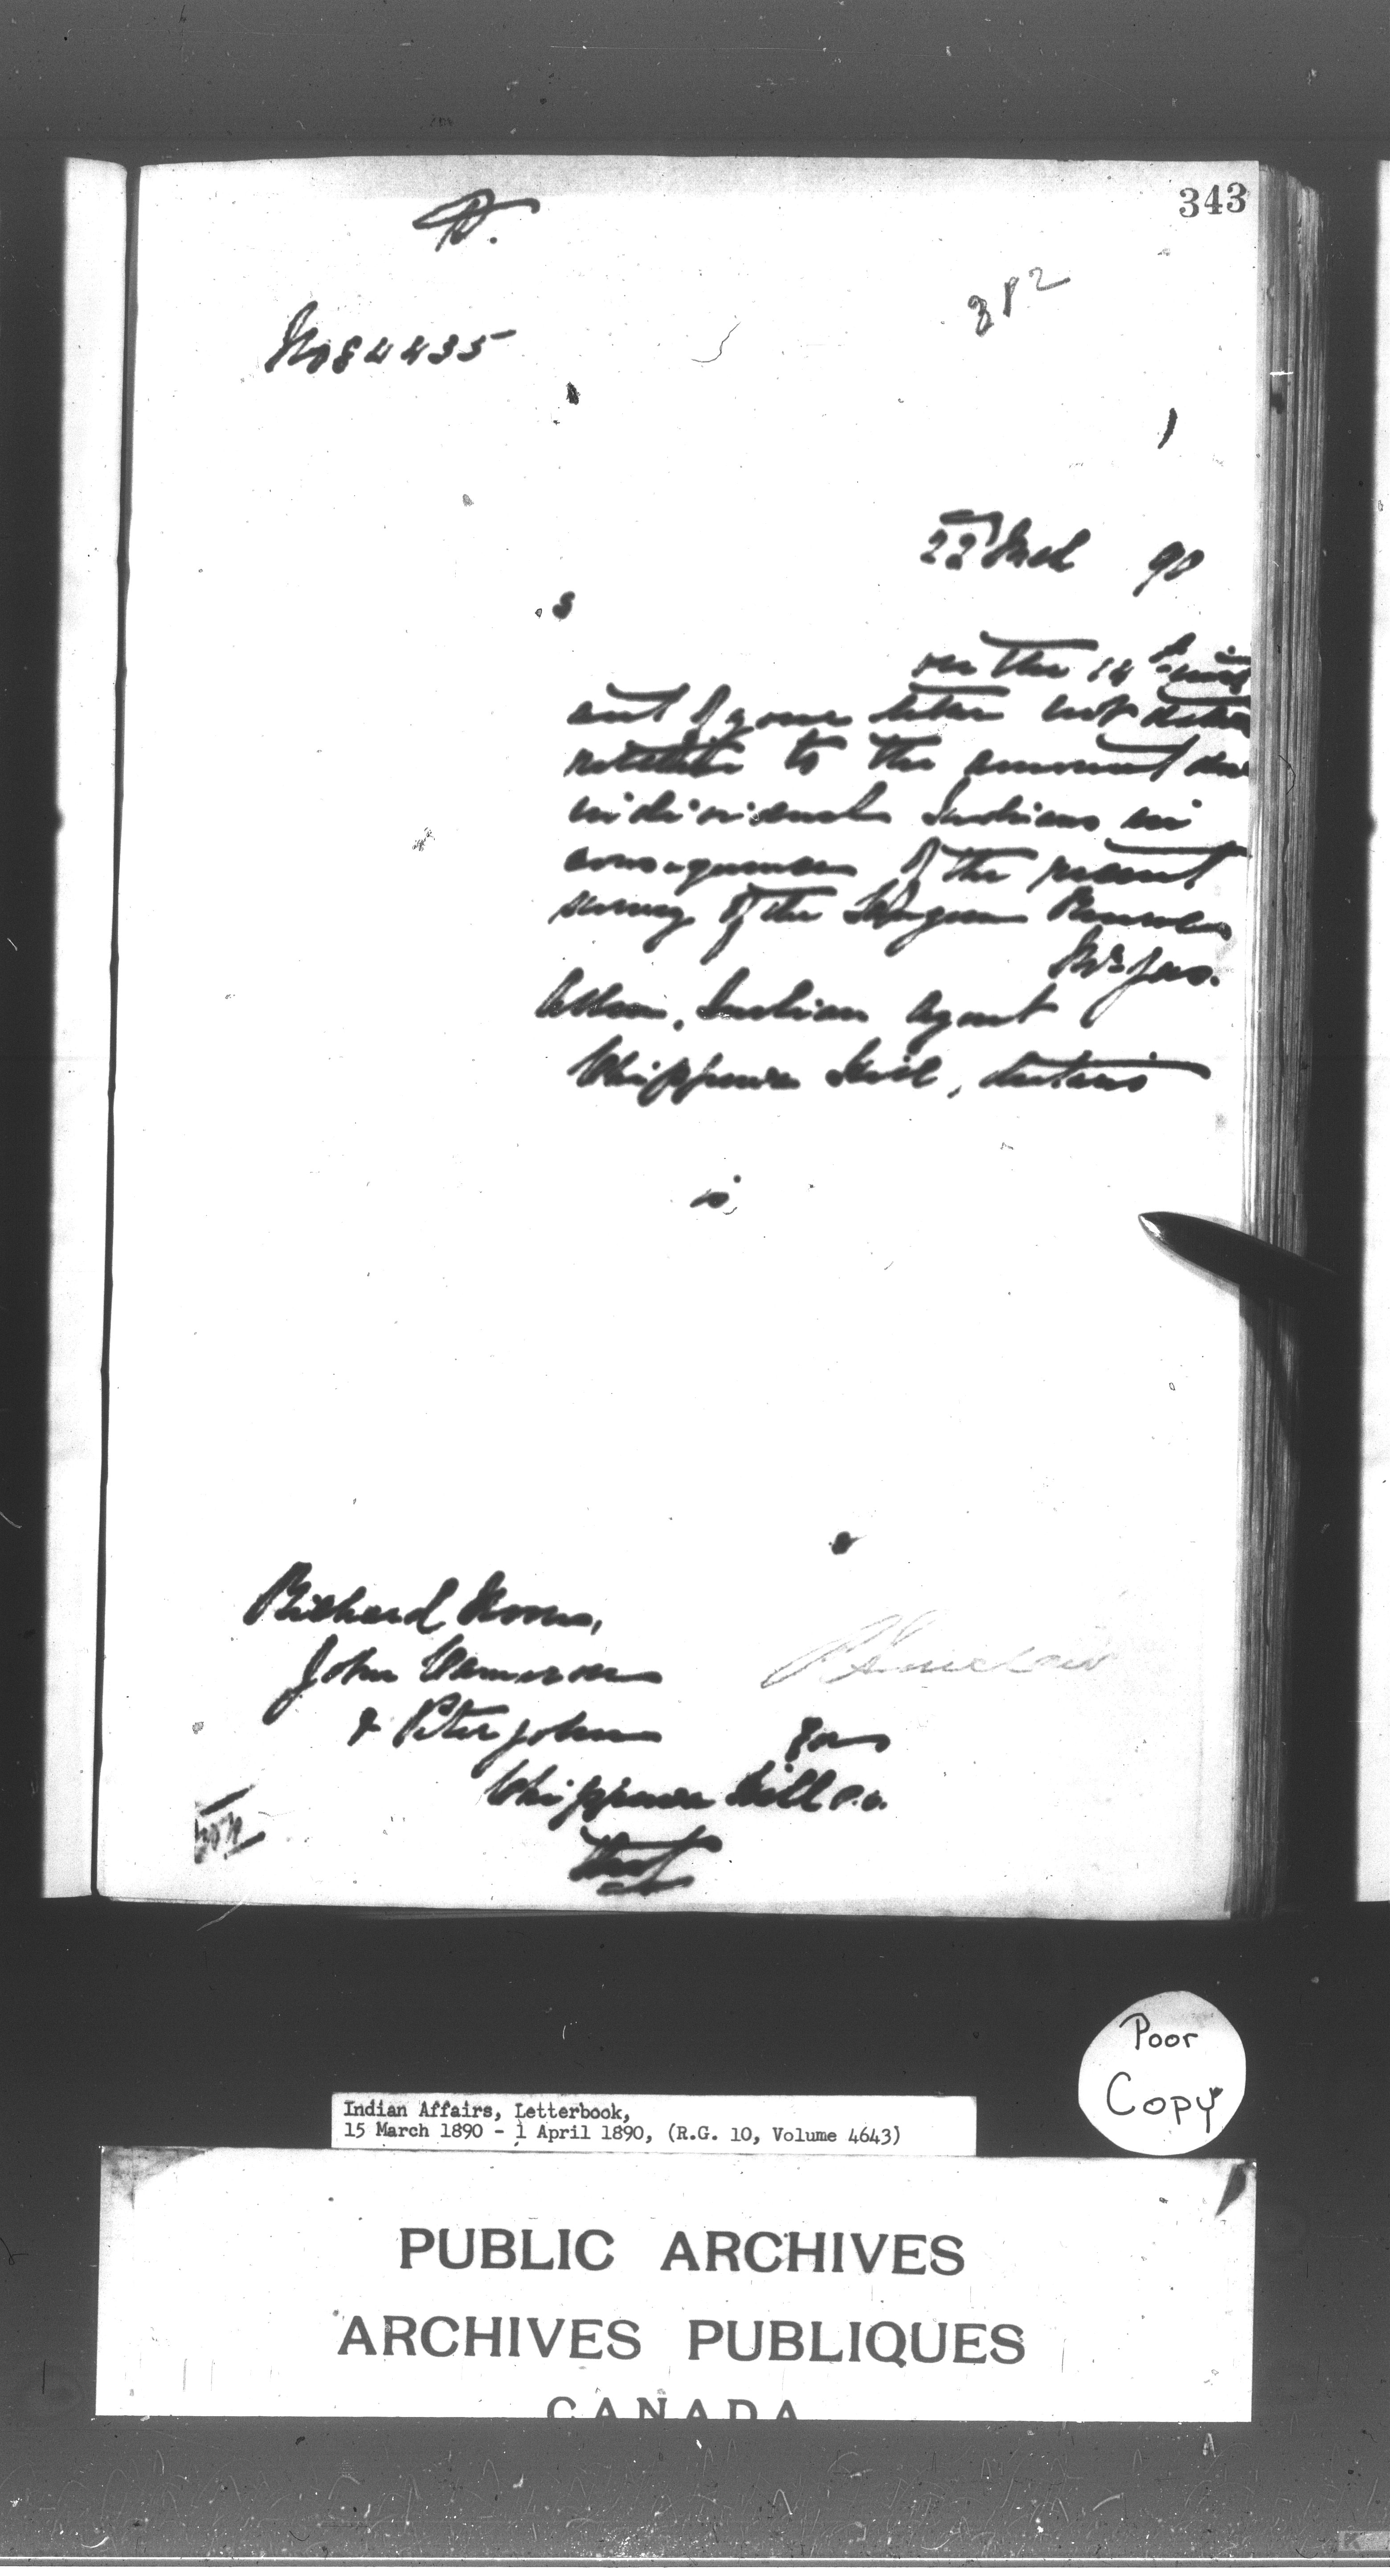 343
382
No 84435
22 Mch 90
s
on the 14th inst
ant of your letter not dated
relative to the amount due
individual Indians in
consequence of the recent
survey of the Saugeen Reserve
Mr Jas.
Allen, Indian Agent
Chippewa Hill, Ontario
Richard
John Cameron
& Peter John
for
Chippewa Hill P.O.
Ont
Poor
Copy
Indian Affairs, Letterbook,
15 March 1890 - 1 April 1890, (R.G. 10, Volume 4643)
PUBLIC ARCHIVES
ARCHIVES PUBLIQUES
CANADA